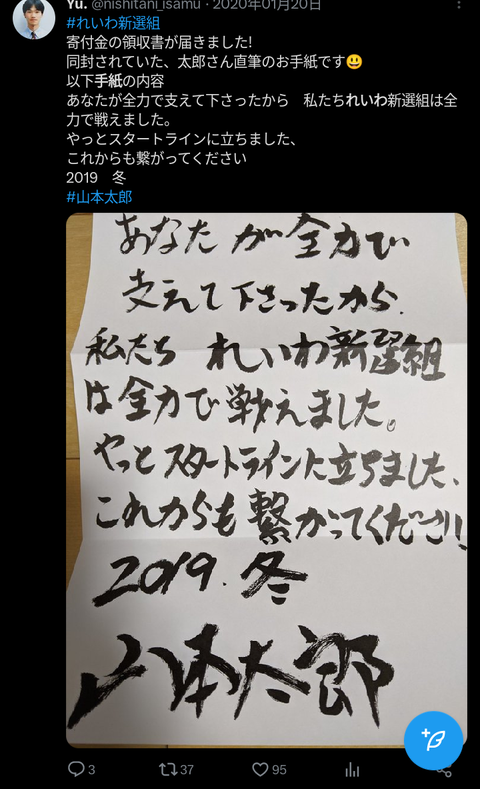 Yu. @nishitani_isamu · 2020年01月20日
#れいわ新選組
寄付金の領収書が届きました!
同封されていた、太郎さん直筆のお手紙です😃
以下手紙の内容
あなたが全力で支えて下さったから　私たちれいわ新選組は全
力で戦えました。
やっとスタートラインに立ちました、
これからも繋がってください
2019　冬
#山本太郎
あなたが全力で
支えて下さったから.
私たち れいわ新選組
は全力で戦えました。
やっとスタートラインに立ちました、
これからも繋がってください!
2019. 冬
山本太郎
3 37 95